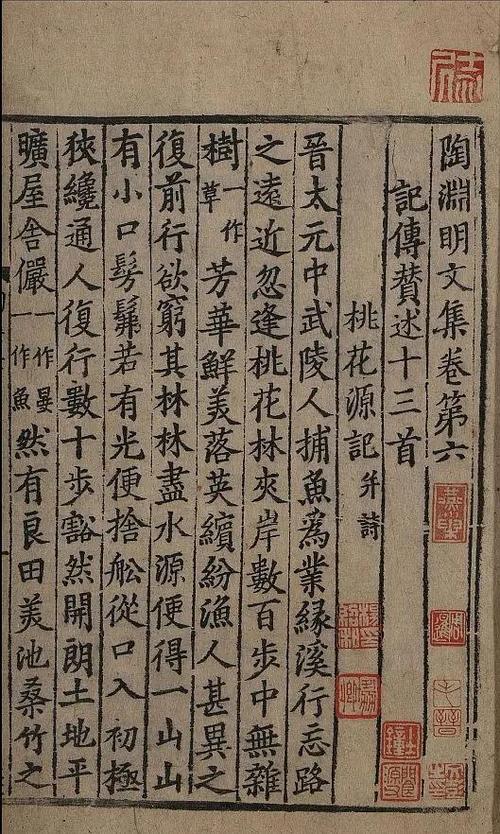 陶淵明文集卷第六
記傳贊述十三首
桃花源記并詩
晉太元中武陵人捕魚爲業緣溪行忘路
之遠近忽逢桃花林夾岸數百步中無雜
樹一作草芳華鮮美落英繽紛漁人甚異之
復前行欲窮其林林盡水源便得一山山
有小口髣髴若有光便捨舩從口入初極
狹纔通人復行數十步豁然開朗土地平
曠屋舍儼一作晏一作魚然有良田美池桑竹之